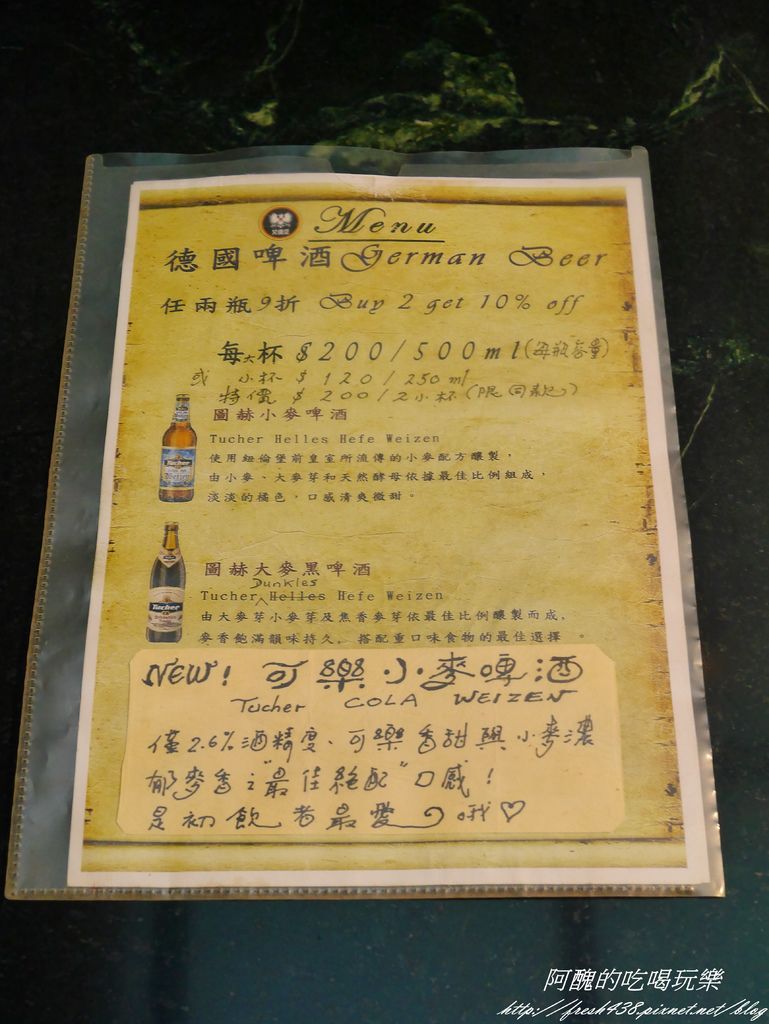 Menu
德國啤酒 German Beer
任兩瓶9折 Buy 2 get 10% off
每大杯 $200/500ml(每瓶容量)
或 小杯 $120/250ml
特價 $200/2小杯(限同款)
圖赫小麥啤酒
Tucher Helles Hefe Weizen
使用紐倫堡前皇室所流傳的小麥配方釀製，
由小麥、大麥芽和天然酵母依據最佳比例組成，
淡淡的橘色，口感清爽微甜。
Tucher
圖赫大麥黑啤酒
Dunkles
Tucher Helles Hefe Weizen
由大麥芽小麥芽及焦香麥芽依最佳比例釀製而成，
麥香飽滿韻味持久，搭配重口味食物的最佳選擇。
Tucher
NEW! 可樂小麥啤酒
Tucher COLA WEIZEN
僅2.6%酒精度、可樂香甜與小麥濃
郁麥香之"最佳絕配"口感!
是初飲者最愛哦♡
阿醜的吃喝玩樂
http://fresh438.pixnet.net/blog